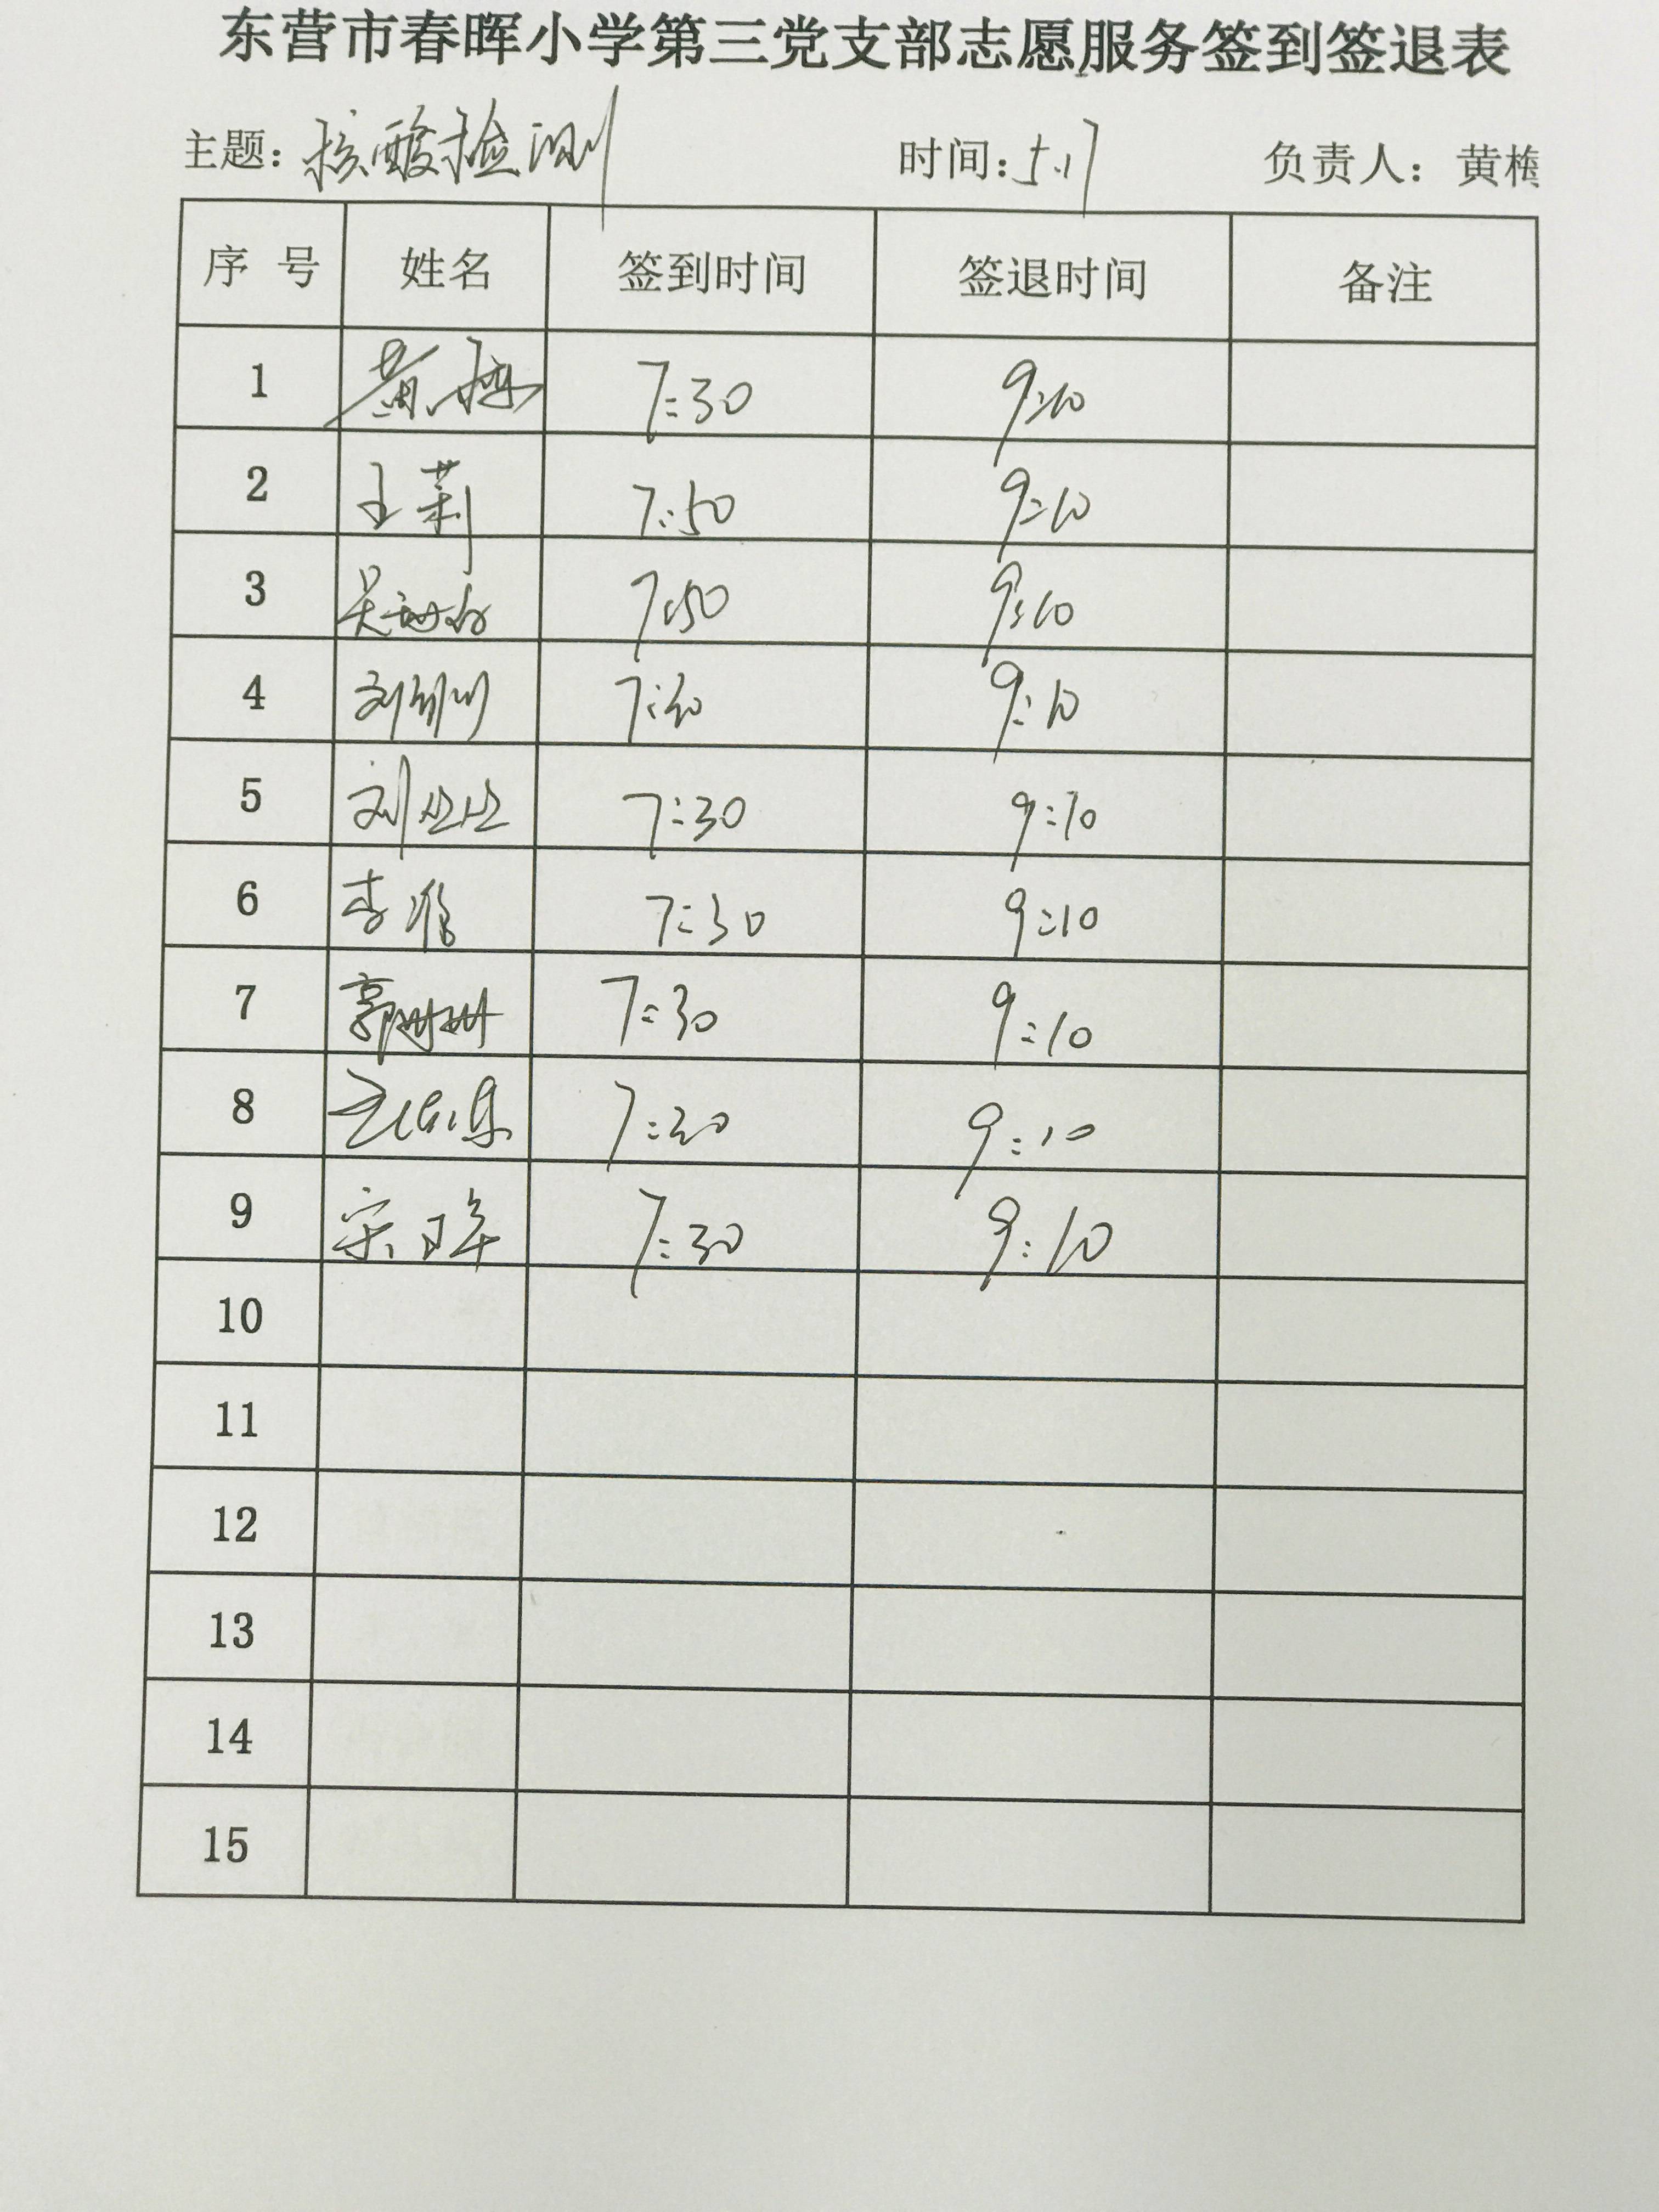 东营市春晖小学第三党支部志愿服务签到签退表
主题：核酸检测 时间：5.17 负责人：黄梅
序号 姓名 签到时间 签退时间 备注
1 黄梅 7:30 9:10
2 王莉 7:50 9:10
3 吴 7:50 9:10
4 刘 9:10
5 刘丛丛 7:30 9:10
6 李 7:30 9:10
7 郭珊珊 7:30 9:10
8 9:10
9 宋 7:30 9:10
10
11
12
13
14
15